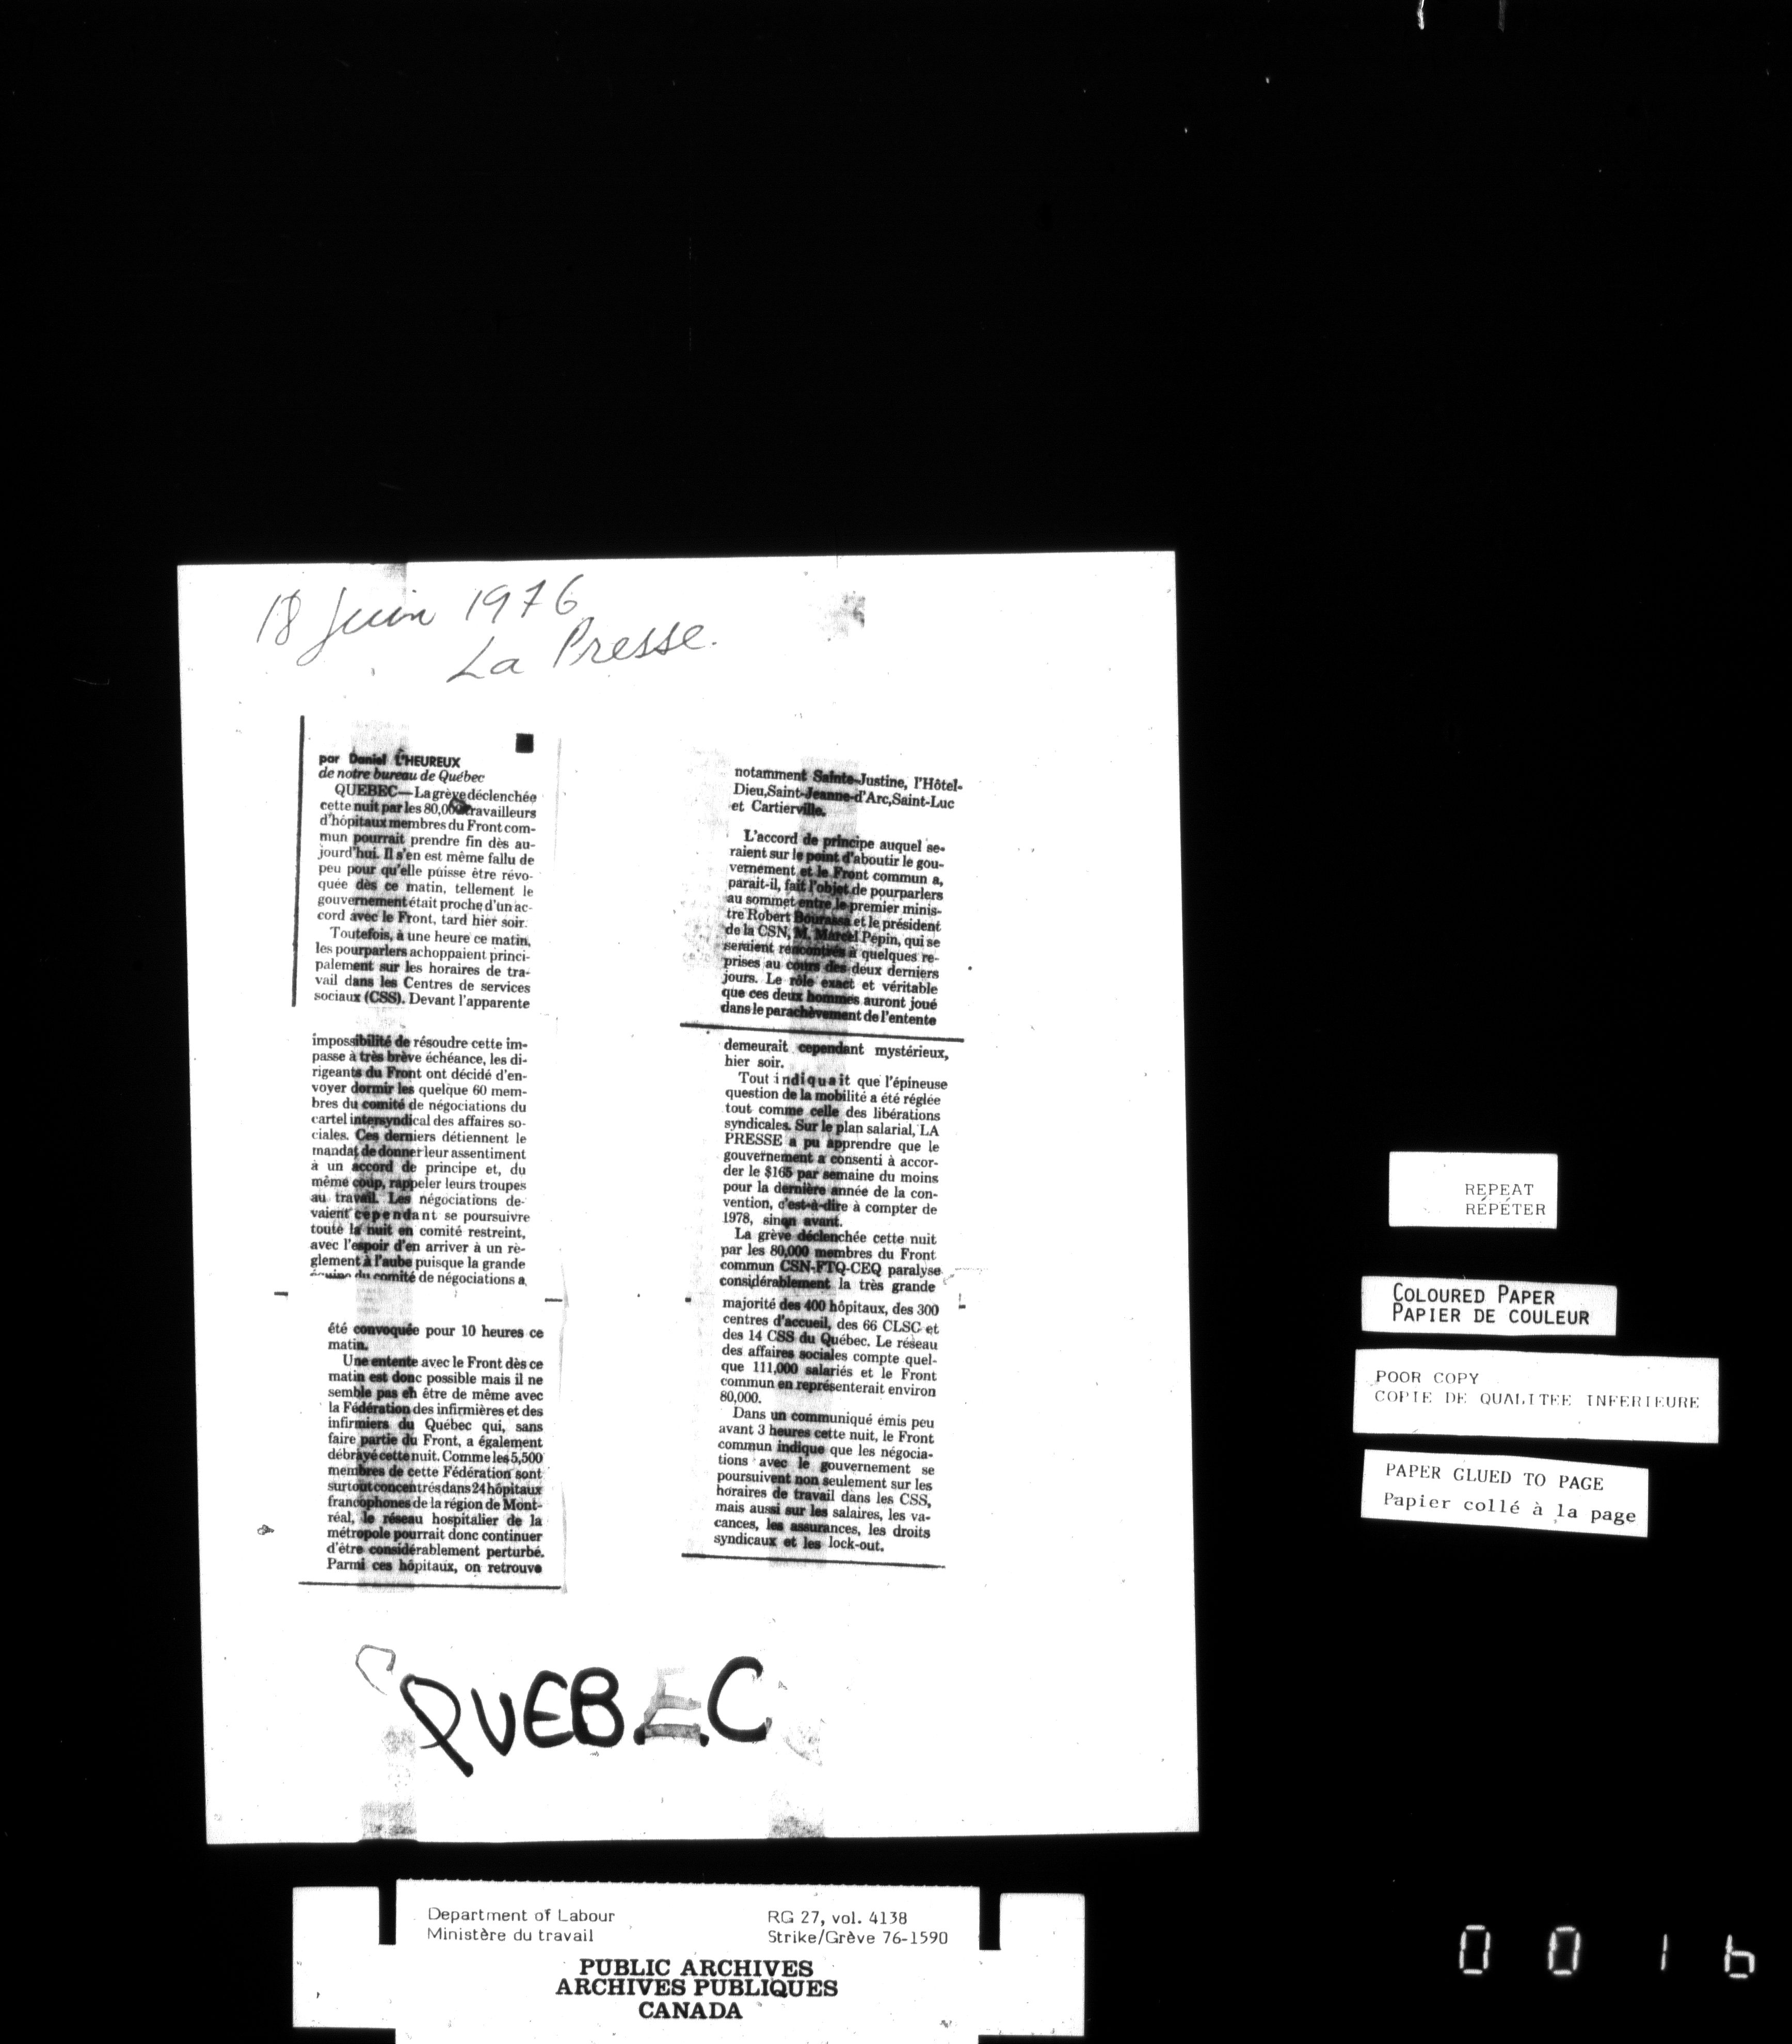 18 Juin 1976
La Presse.
par Daniel L'HEUREUX
de notre bureau de Québec
QUEBEC—La grève déclenchée
cette nuit par les 80,000 travailleurs
d'hôpitaux membres du Front com-
mun pourrait prendre fin dès au-
jourd'hui. Il s'en est même fallu de
peu pour qu'elle puisse être révo-
quée dès ce matin, tellement le
gouvernement était proche d'un ac-
cord avec le Front, tard hier soir.
Toutefois, à une heure ce matin,
les pourparlers achoppaient princi-
palement sur les horaires de tra-
vail dans les Centres de services
sociaux (CSS). Devant l'apparente
impossibilité de résoudre cette im-
passe à très brève échéance, les di-
rigeants du Front ont décidé d'en-
voyer dormir les quelque 60 mem-
bres du comité de négociations du
cartel intersyndical des affaires so-
ciales. Ces derniers détiennent le
mandat de donner leur assentiment
à un accord de principe et, du
même coup, rappeler leurs troupes
au travail. Les négociations de-
vaient cependant se poursuivre
toute la nuit en comité restreint,
avec l'espoir d'en arriver à un rè-
glement à l'aube puisque la grande
du comité de négociations a
été convoquée pour 10 heures ce
matin.
Une entente avec le Front dès ce
matin est donc possible mais il ne
semble pas en être de même avec
la Fédération des infirmières et des
infirmiers du Québec qui, sans
faire partie du Front, a également
débrayé cette nuit. Comme les 5,500
membres de cette Fédération sont
surtout concentrés dans 24 hôpitaux
francophones de la région de Mont-
réal, le réseau hospitalier de la
métropole pourrait donc continuer
d'être considérablement perturbé.
Parmi ces hôpitaux, on retrouve
notamment Sainte-Justine, l'Hôtel-
Dieu, Saint-Jeanne-d'Arc, Saint-Luc
et Cartierville.
L'accord de principe auquel se-
raient sur le point d'aboutir le gou-
vernement et le Front commun a,
parait-il, fait l'objet de pourparlers
au sommet entre le premier minis-
tre Robert Bourassa et le président
de la CSN, M. Marcel Pépin, qui se
seraient rencontrés à quelques re-
prises au cours des deux derniers
jours. Le rôle exact et véritable
que ces deux hommes auront joué
dans le parachèvement de l'entente
demeurait cependant mystérieux,
hier soir.
Tout indiquait que l'épineuse
question de la mobilité a été réglée
tout comme celle des libérations
syndicales. Sur le plan salarial, LA
PRESSE a pu apprendre que le
gouvernement a consenti à accor-
der le $165 par semaine du moins
pour la dernière année de la con-
vention, c'est-à-dire à compter de
1978, sinon avant.
La grève déclenchée cette nuit
par les 80,000 membres du Front
commun CSN-FTQ-CEQ paralyse
considérablement la très grande
majorité des 400 hôpitaux, des 300
centres d'accueil, des 66 CLSC et
des 14 CSS du Québec. Le réseau
des affaires sociales compte quel-
que 111,000 salariés et le Front
commun en représenterait environ
80,000.
Dans un communiqué émis peu
avant 3 heures cette nuit, le Front
commun indique que les négocia-
tions avec le gouvernement se
poursuivent non seulement sur les
horaires de travail dans les CSS,
mais aussi sur les salaires, les va-
cances, les assurances, les droits
syndicaux et les lock-out.
QUEBEC
REPEAT
RÉPÉTER
COLOURED PAPER
PAPIER DE COULEUR
POOR COPY
COPIE DE QUALITEE INFERIEURE
PAPER GLUED TO PAGE
Papier collé à la page
Department of Labour
Ministère du travail
RG 27, vol. 4138
Strike/Grève 76-1590
PUBLIC ARCHIVES
ARCHIVES PUBLIQUES
CANADA
0016